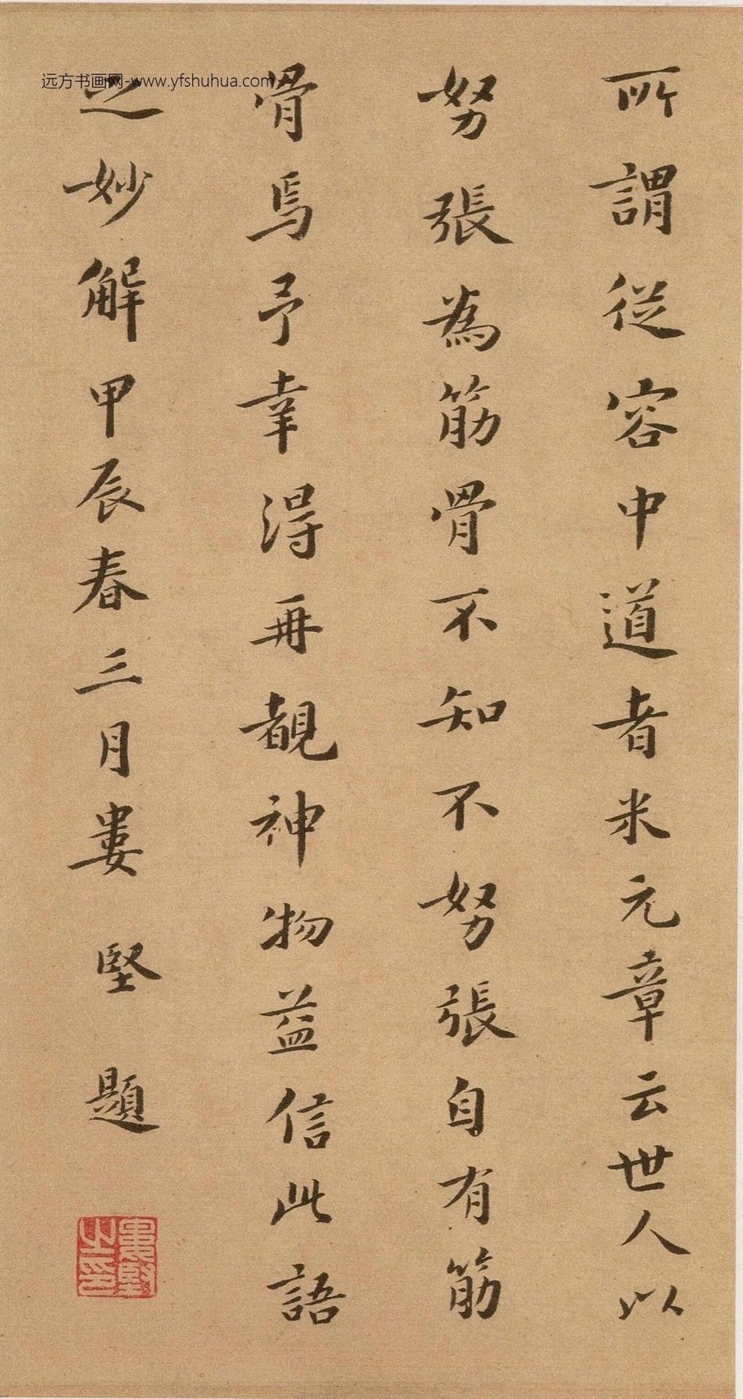 远方书画网-www.yfshuhua.com
所謂從容中道者米元章云世人以
努張為筋骨不知不努張自有筋
骨焉予幸得再覩神物益信此語
之妙解甲辰春三月婁堅題
婁堅之印